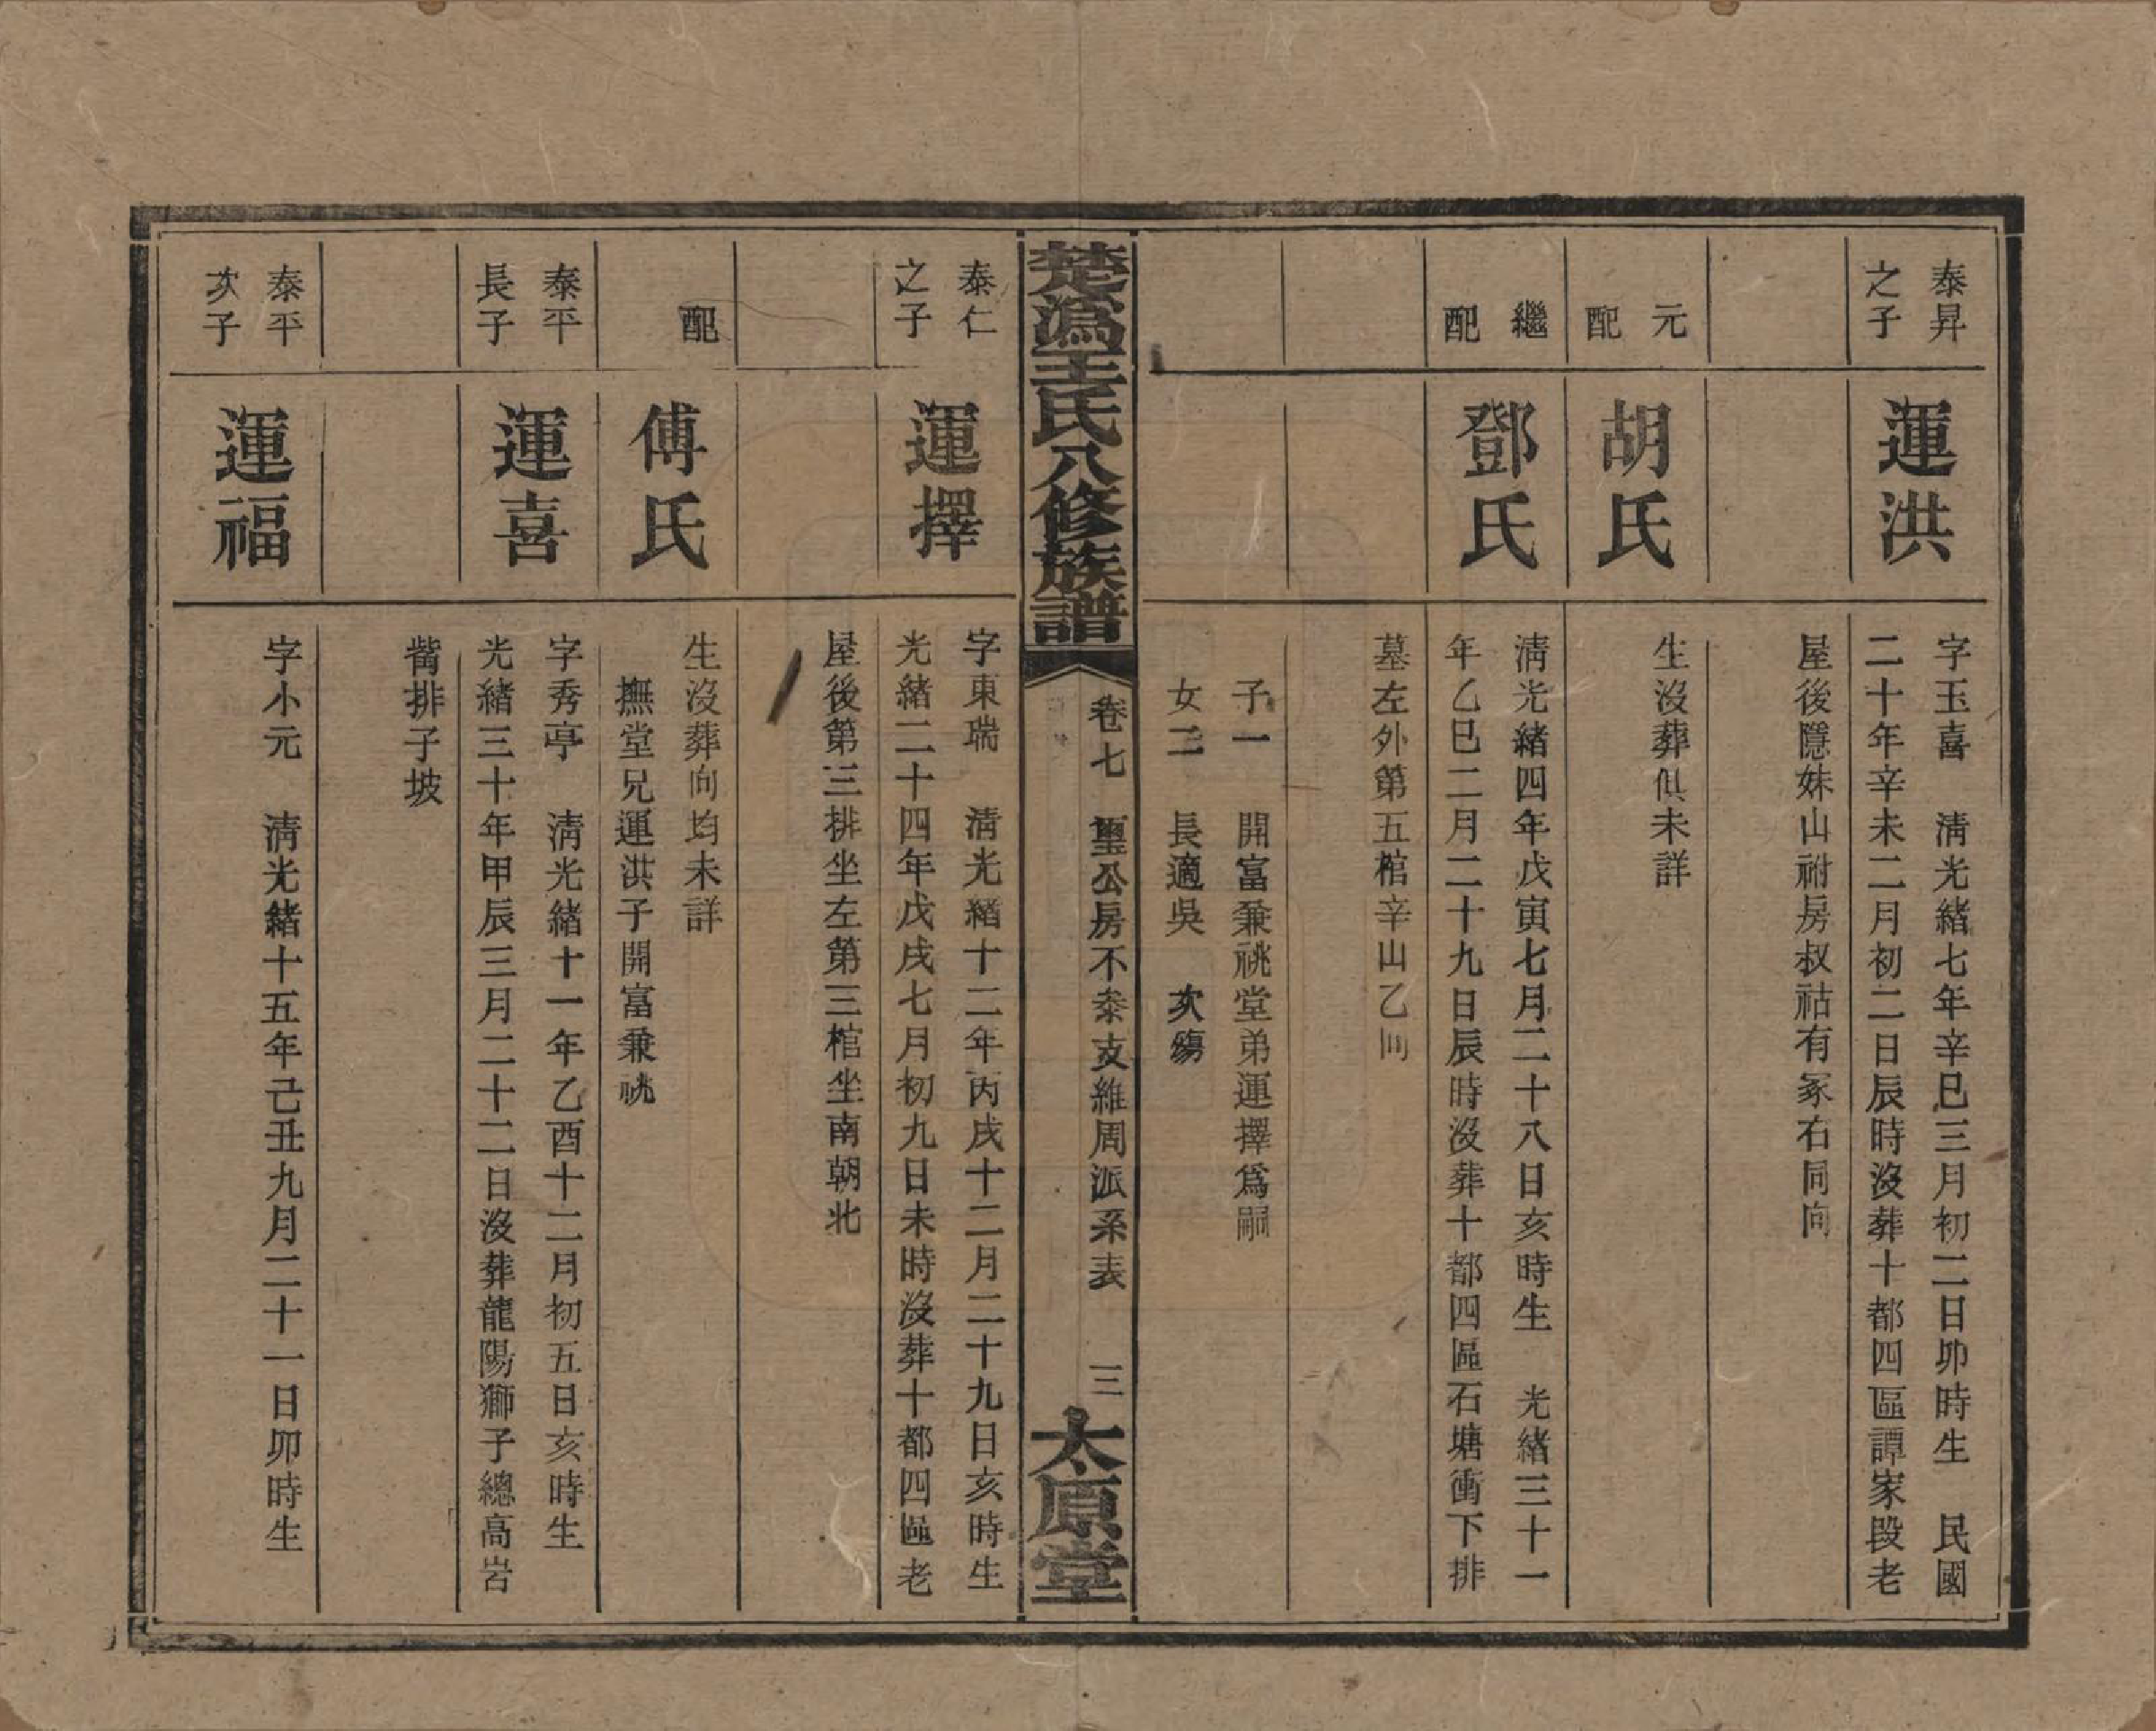 泰昇
之子
運洪
字玉喜 清光緒七年辛巳三月初二日卯時生 民國
二十年辛未二月初二日辰時沒葬十都四區譚家段老
屋後隱妹山祔房叔祜有冢右同向
元
配
胡氏
生沒葬俱未詳
繼
配
鄧氏
清光緒四年戊寅七月二十八日亥時生 光緒三十一
年乙巳二月二十九日辰時沒葬十都四區石塘衝下排
墓左外第五棺辛山乙向
子一 開富兼祧堂弟運擇爲嗣
女二 長適吳 次殤
楚潙王氏八修族譜
卷七 璽公房不泰支維周派系表 三
太原堂
泰仁
之子
運擇
字東瑞 清光緒十二年丙戌十二月二十九日亥時生
光緒二十四年戊戌七月初九日未時沒葬十都四區老
屋後第三排坐左第三棺坐南朝北
配
傅氏
生沒葬向均未詳
撫堂兄運洪子開富兼祧
泰平
長子
運喜
字秀亭 清光緒十一年乙酉十二月初五日亥時生
光緒三十年甲辰三月二十二日沒葬龍陽獅子總高岩
觜排子坡
泰平
次子
運福
字小元 清光緒十五年己丑九月二十一日卯時生